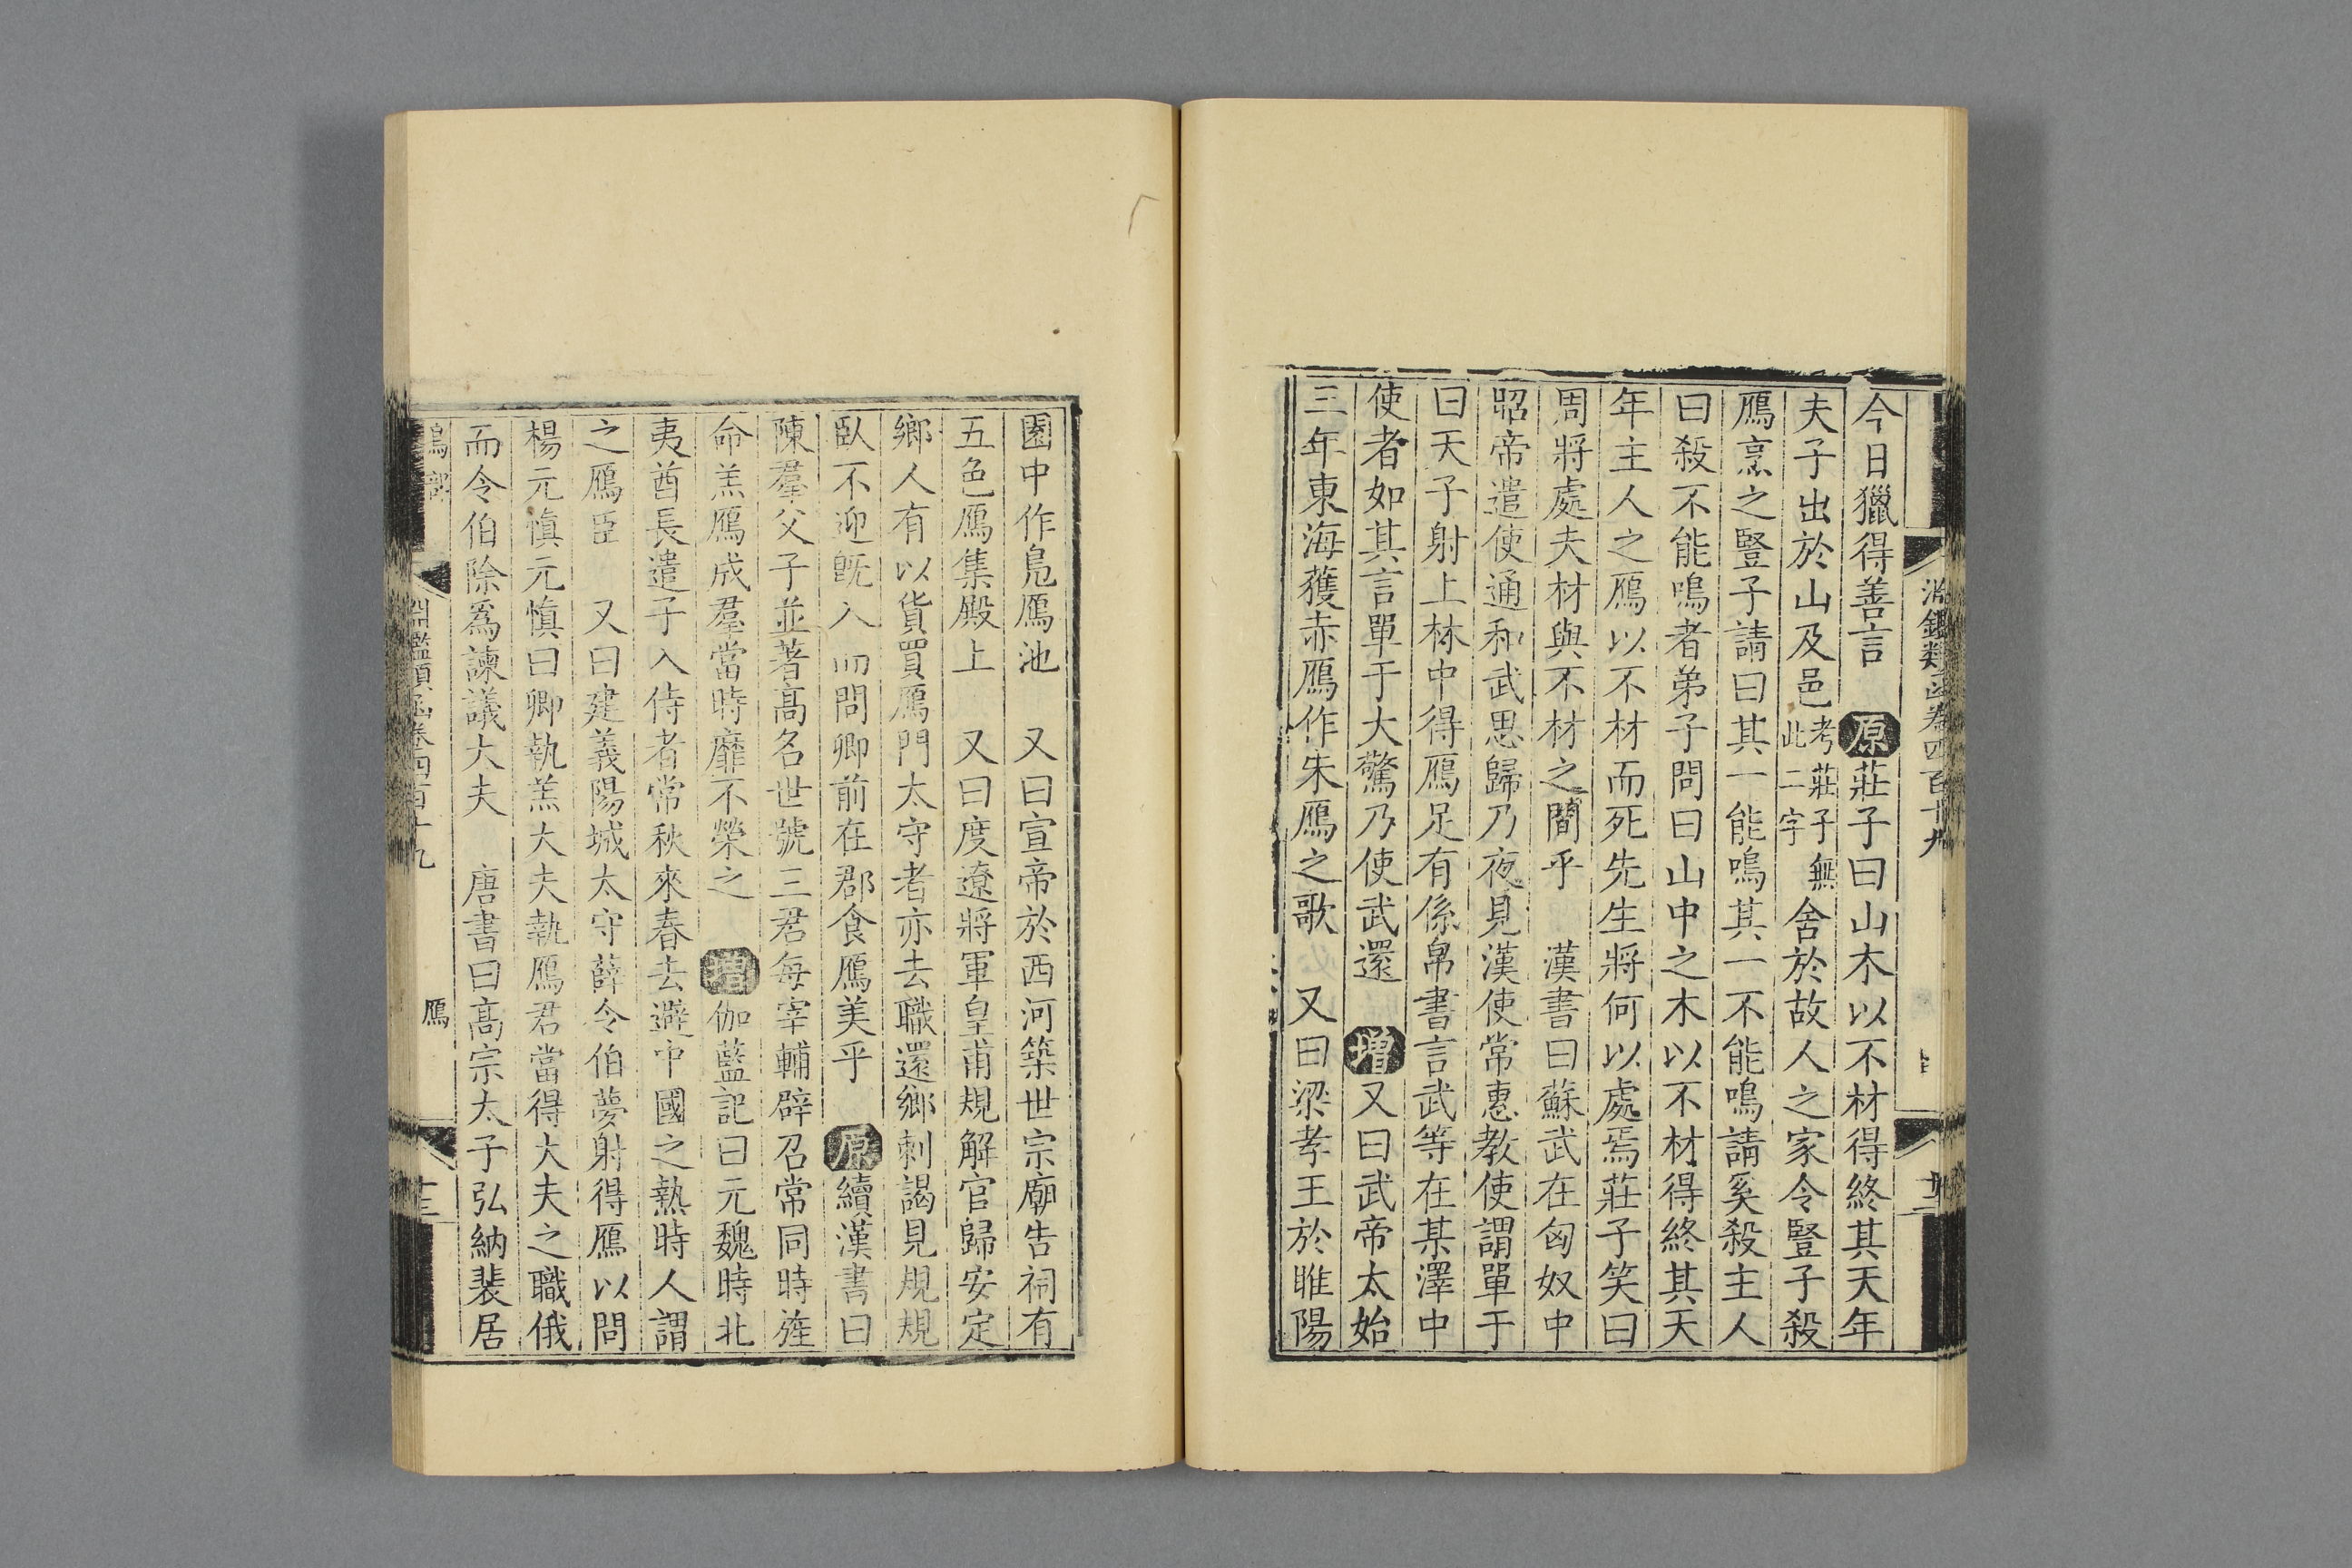 今日獵得善言 原莊子曰山木以不材得終其天年
夫子出於山及邑考莊子無此二字舍於故人之家令豎子殺
鴈烹之豎子請曰其一能鳴其一不能鳴請奚殺主人
曰殺不能鳴者弟子問曰山中之木以不材得終其天
年主人之鴈以不材而死先生將何以處焉莊子笑曰
周將處夫材與不材之間乎 漢書曰蘇武在匈奴中
昭帝遣使通和武思歸乃夜見漢使常惠教使謂單于
曰天子射上林中得鴈足有係帛書言武等在某澤中
使者如其言單于大驚乃使武還 增又曰武帝太始
三年東海獲赤鴈作朱鴈之歌 又曰梁孝王於睢陽
園中作鳧鴈池 又曰宣帝於西河築世宗廟告祠有
五色鴈集殿上 又曰度遼將軍皇甫規解官歸安定
鄉人有以貨買鴈門太守者亦去職還鄉刺謁見規規
臥不迎既入而問卿前在郡食鴈美乎 原續漢書曰
陳羣父子並著高名世號三君每宰輔辟召常同時旌
命羔鴈成羣當時靡不榮之 增伽藍記曰元魏時北
夷酋長遣子入侍者常秋來春去避中國之熱時人謂
之鴈臣 又曰建義陽城太守薛令伯夢射得鴈以問
楊元愼元愼曰卿執羔大夫執鴈君當得大夫之職俄
而令伯除爲諫議大夫 唐書曰高宗太子弘納裴居
鳥部 淵鑑類函卷四百十九 鴈